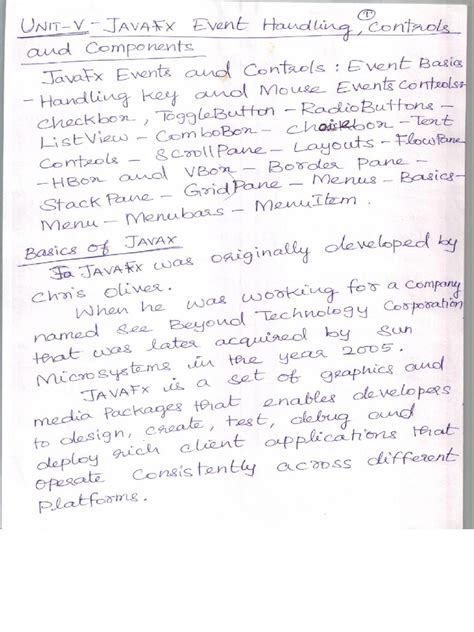 ①
UNIT-V - JAVAFX Event Handling, Controls
and Components
JavaFx Events and Controls : Event Basics
- Handling key and Mouse Events Controls:
checkbox, ToggleButton - RadioButtons -
ListView - ComboBox - Choicebox - Text
Controls - ScrollPane - Layouts - FlowPane
- HBox and VBox - Border pane -
StackPane - GridPane - Menus - Basics -
Menu - Menubars - MenuItem.
Basics of JAVAX
JAVAFX was originally developed by
Chris Oliver.
When he was working for a company
named See Beyond Technology Corporation
that was later acquired by Sun
Microsystems in the year 2005.
JAVAFX is a set of graphics and
media Packages that enables developers
to design, create, test, debug and
deploy rich client applications that
operate consistently across different
platforms.